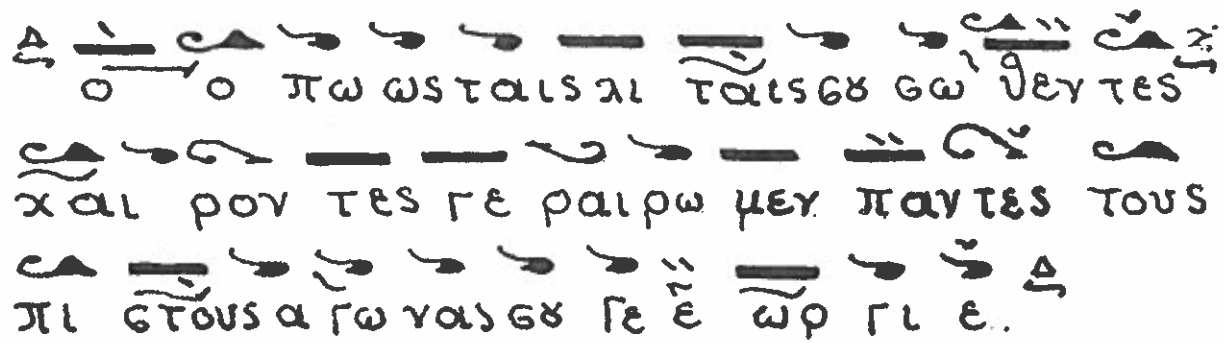 ο ο πω ως ταις λι ταις σȣ σω θεν τες
χαι ρον τες γε ραι ρω μεν παν τες τους
πι στους α γω νας σȣ Γε ε ωρ γι ε..